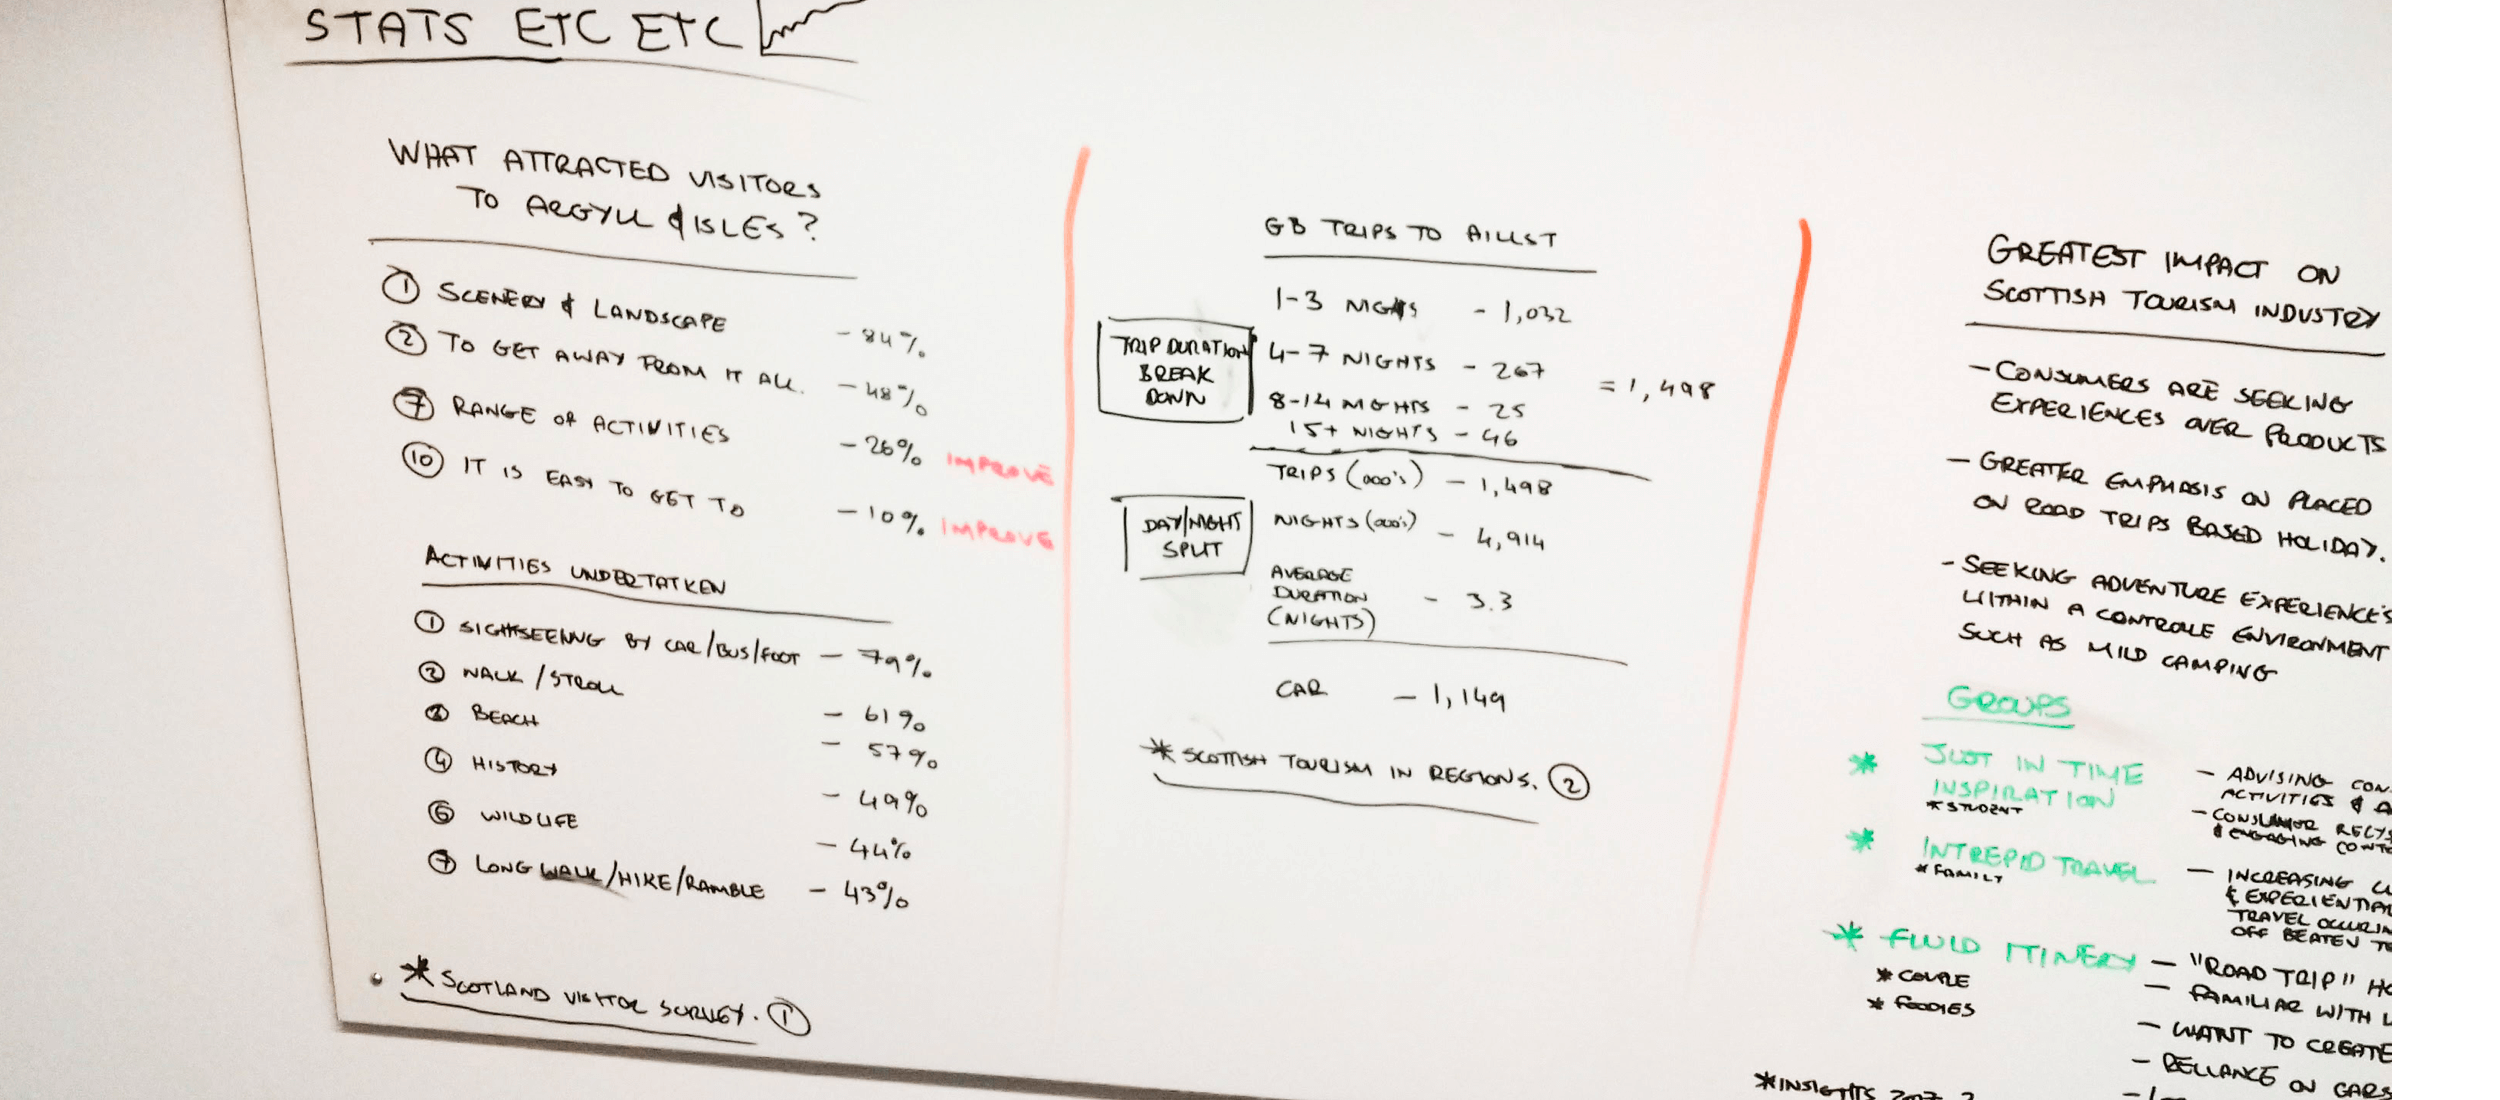 STATS ETC ETC
WHAT ATTRACTED VISITORS
TO ARGYLL & ISLES?
① SCENERY & LANDSCAPE - 84%
② TO GET AWAY FROM IT ALL. - 48%
⑦ RANGE OF ACTIVITIES - 26% IMPROVE
⑩ IT IS EASY TO GET TO - 10% IMPROVE
ACTIVITIES UNDERTATKEN
① SIGHTSEEING BY CAR/BUS/FOOT - 79%
② WALK / STROLL - 61%
③ BEACH - 57%
④ HISTORY - 49%
⑥ WILDLIFE - 44%
⑦ LONG WALK/HIKE/RAMBLE - 43%
* SCOTLAND VISITOR SURVEY. ①
GB TRIPS TO AILLST
1-3 NIGHTS - 1,032
TRIP DURATION
BREAK
DOWN
4-7 NIGHTS - 267
= 1,498
8-14 NIGHTS - 25
15+ NIGHTS - 46
TRIPS (000's) - 1,498
DAY/NIGHT
SPLIT
NIGHTS (000's) - 4,914
AVERAGE
DURATION
(NIGHTS) - 3.3
CAR - 1,149
* SCOTTISH TOURISM IN REGIONS. ②
GREATEST IMPACT ON
SCOTTISH TOURISM INDUSTRY
- CONSUMERS ARE SEEKING
EXPERIENCES OVER PRODUCTS
- GREATER EMPHASIS ON PLACED
ON ROAD TRIPS BASED HOLIDAY.
- SEEKING ADVENTURE EXPERIENCE'S
WITHIN A CONTROLE ENVIRONMENT
SUCH AS MILD CAMPING
GROUPS
* JUST IN TIME
INSPIRATION
* STUDENT
- ADVISING CON
ACTIVITIES &
- CONSUMER
& ENGAGING
* INTREPID TRAVEL
* FAMILY
- INCREASING
& EXPERIENTIAL
TRAVEL OCCURIN
OFF BEATEN
* FLUID ITINERY
* COUPLE
* FOODIES
- "ROAD TRIP"
- FAMILIAR WITH
- WANT TO CREATE
- RELIANCE ON CARS
* INSIGHTS